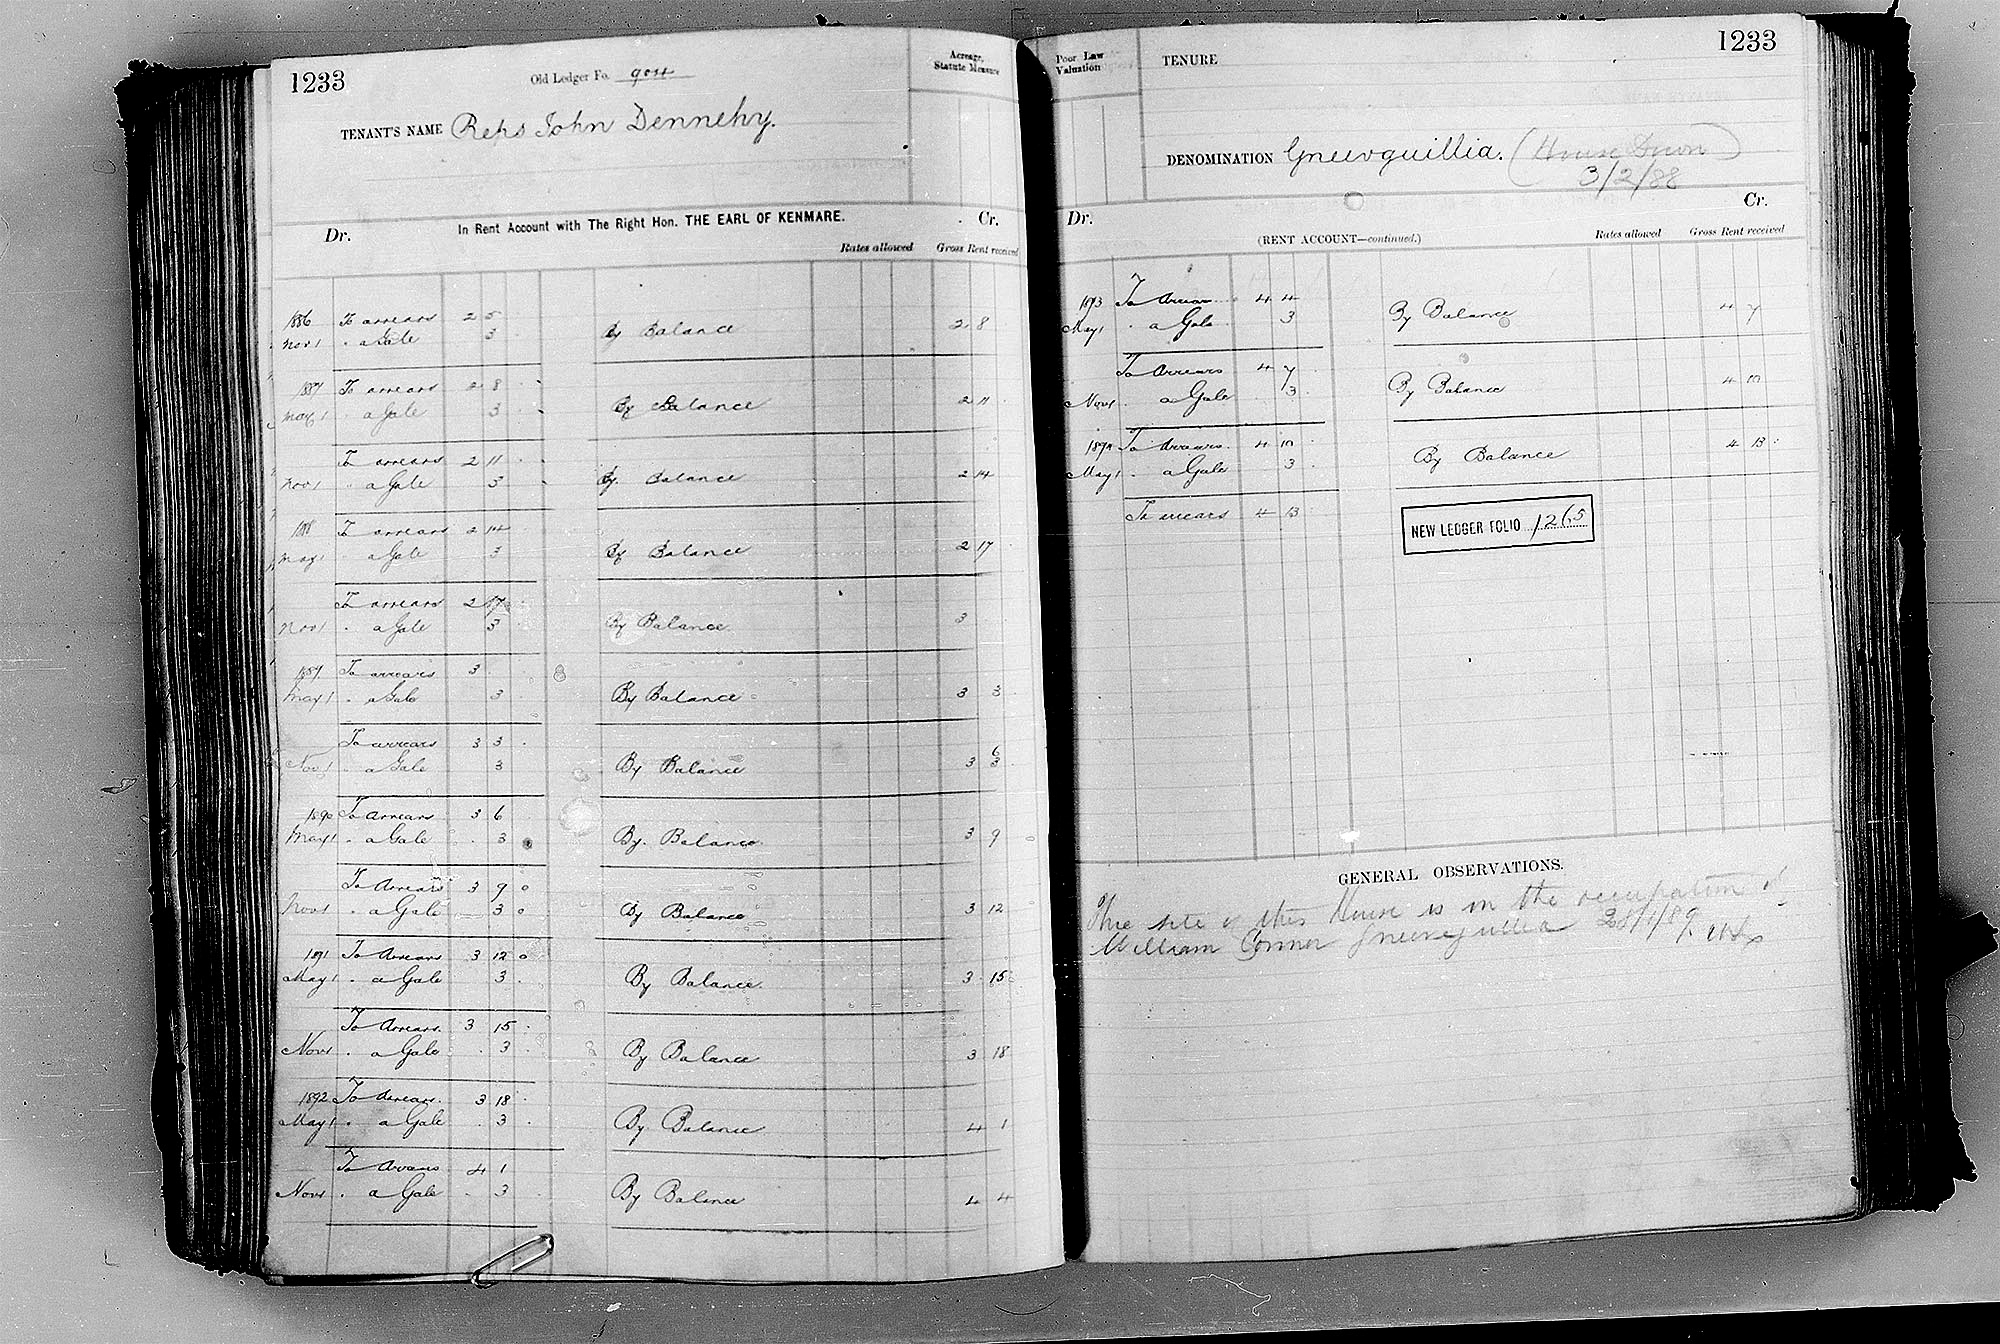 1233
Old Ledger Fo. 904
Acreage, Statute Measure
TENANT'S NAME Reps John Dennehy.
In Rent Account with The Right Hon. THE EARL OF KENMARE.
Dr. Cr.
Rates allowed Gross Rent received
1886 To arrears 2 5
Nov 1 . a Gale 3 By Balance 2 8
1887 To arrears 2 8
May 1 . a Gale 3 By Balance 2 11
To arrears 2 11
Nov 1 . a Gale 3 By Balance 2 14
1888 To arrears 2 14
May 1 . a Gale 3 By Balance 2 17
To arrears 2 17
Nov 1 . a Gale 3 By Balance 3
1889 To arrears 3
May 1 . a Gale 3 By Balance 3 3
To arrears 3 3
Nov 1 . a Gale 3 By Balance 3 6
1890 To arrears 3 6
May 1 . a Gale 3 By Balance 3 9
To Arrears 3 9 0
Nov 1 . a Gale 3 0 By Balance 3 12
1891 To Arrears 3 12 0
May 1 . a Gale 3 By Balance 3 15
To Arrears 3 15
Nov 1 . a Gale 3 By Balance 3 18
1892 To Arrears 3 18
May 1 . a Gale 3 By Balance 4 1
To Arrears 4 1
Nov 1 . a Gale 3 By Balance 4 4
1233
Poor Law Valuation
TENURE
DENOMINATION Gneevguillia. (House Down)
3/2/88
Dr. Cr.
(RENT ACCOUNT—continued.)
Rates allowed Gross Rent received
1893 To Arrears 4 4
May 1 . a Gale 3 By Balance 4 7
To Arrears 4 7
Nov 1 . a Gale 3 By Balance 4 10
1894 To Arrears 4 10
May 1 . a Gale 3 By Balance 4 13
To arrears 4 13
NEW LEDGER FOLIO 1265
GENERAL OBSERVATIONS.
The site of this House is in the occupation of
William Connor Gneeveguillia 28/1/89.